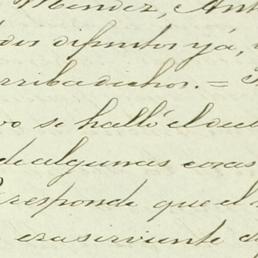 Mendez, Ant
dos difuntos yá,
arriba dichos. =
vo se halló el cu
de algunas cosas
Responde que el
era sirviente d